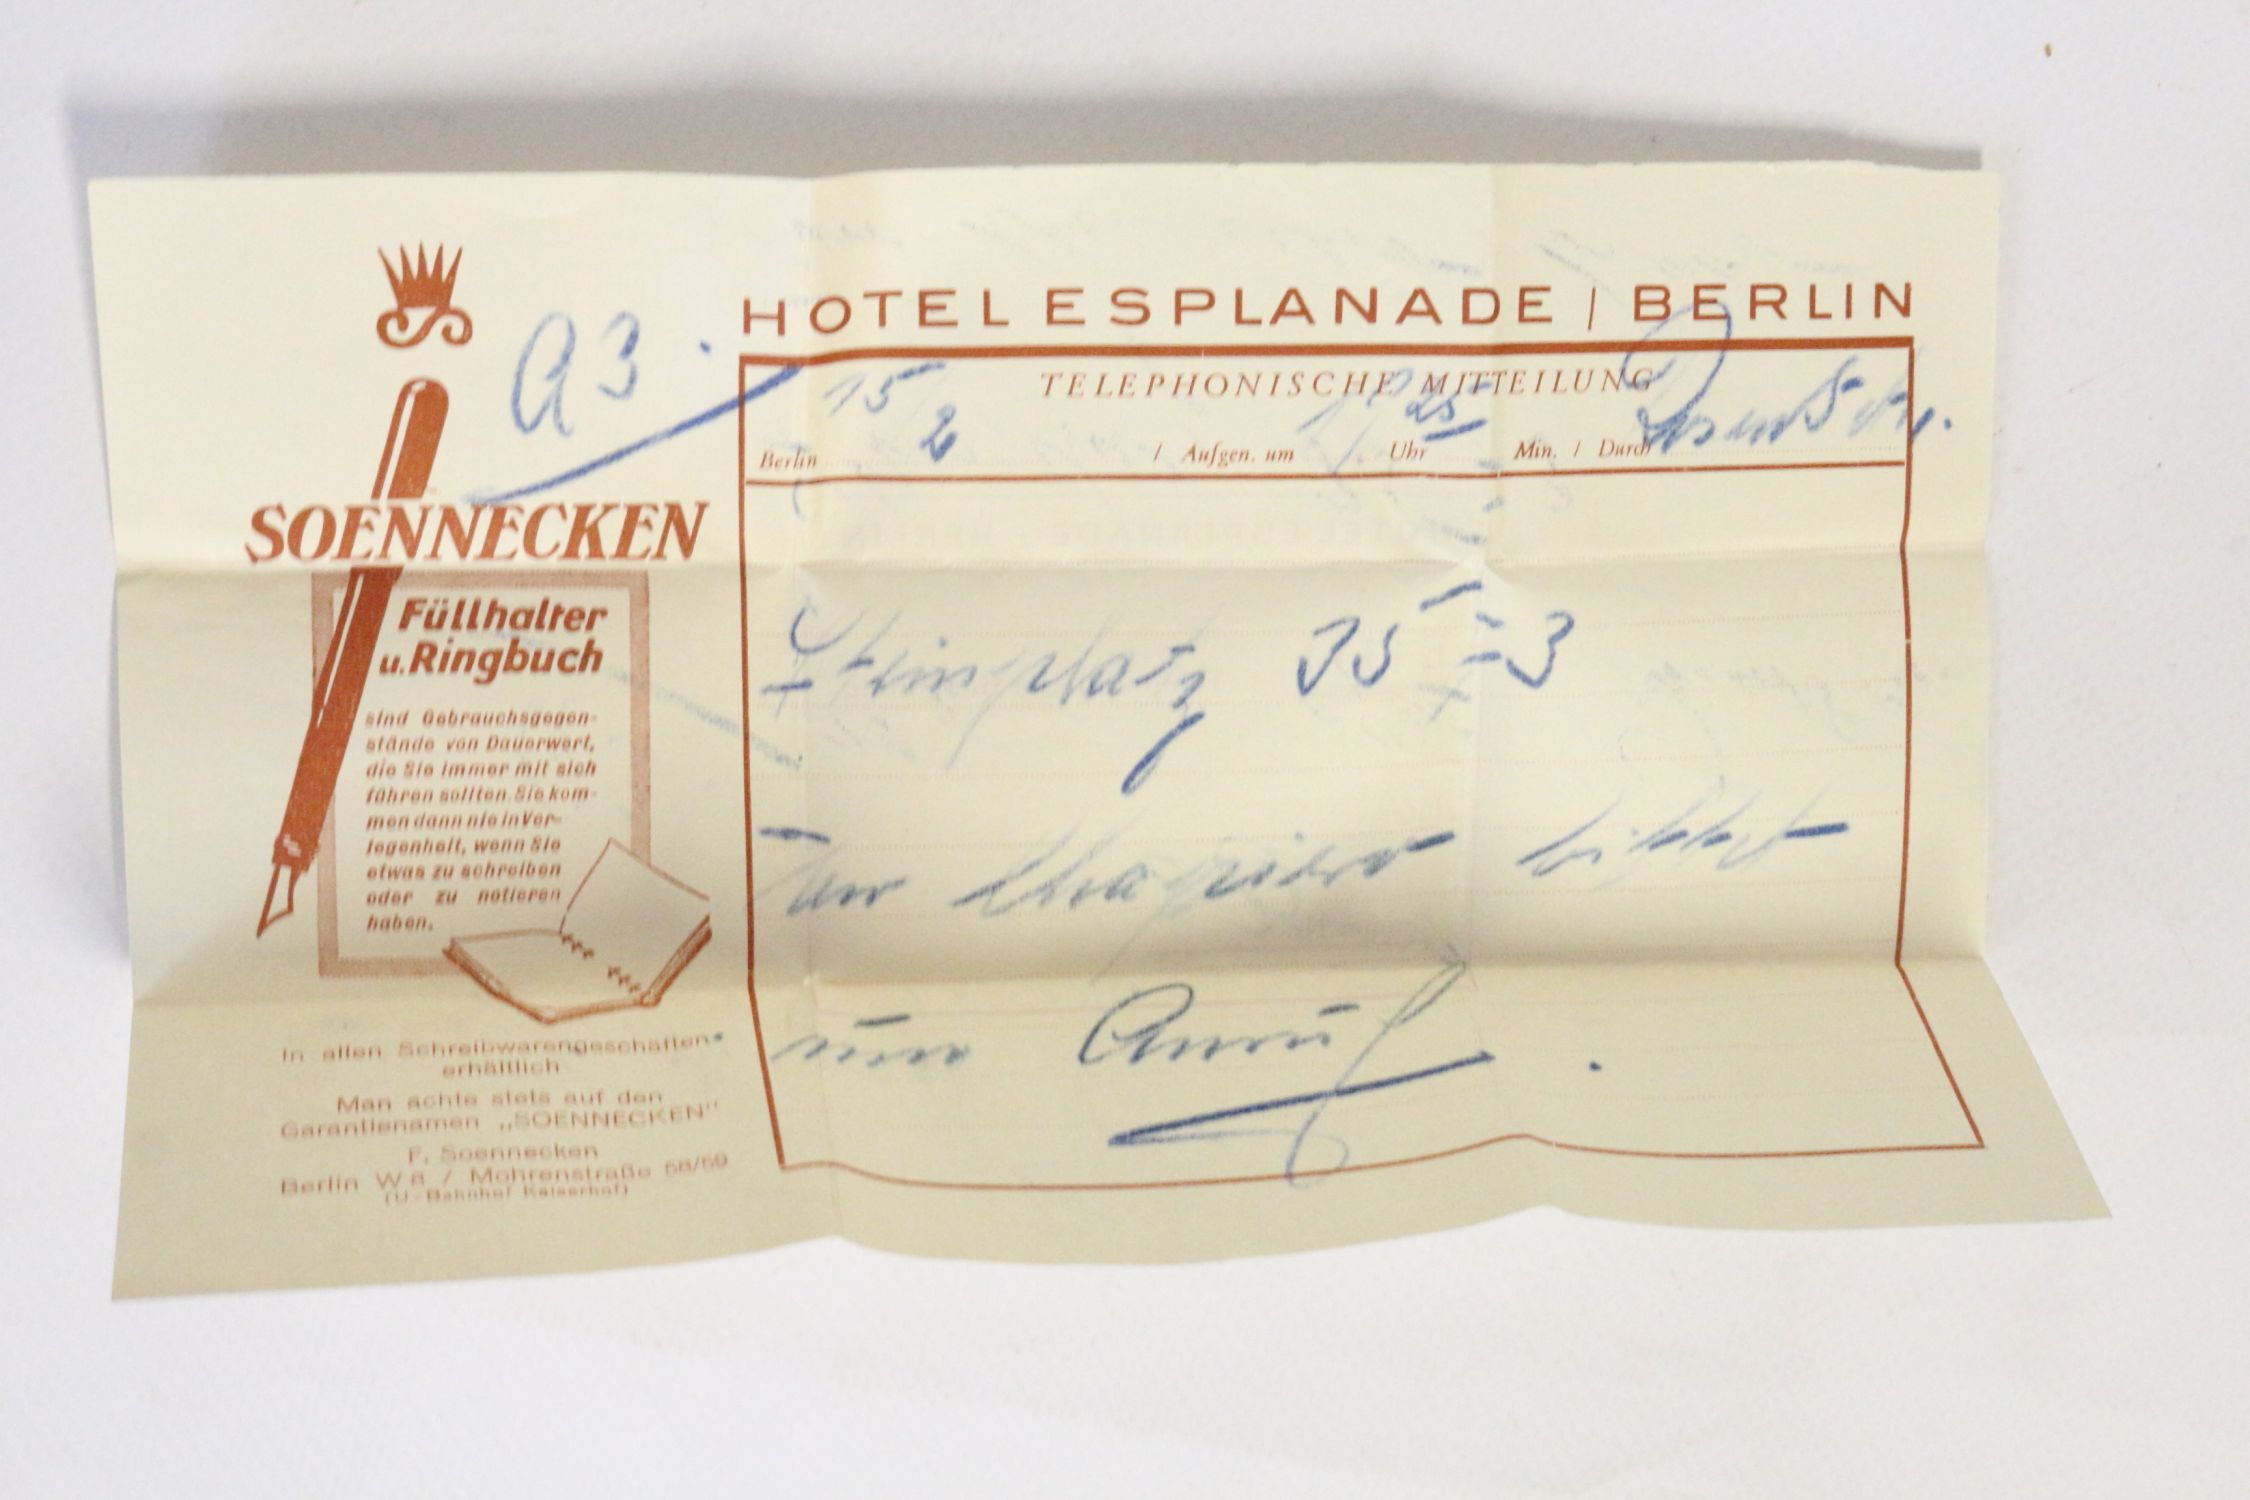 HOTEL ESPLANADE | BERLIN
A 3.
TELEPHONISCHE MITTEILUNG
15/2 25
Berlin / Aufgen. um Uhr Min. / Durch
SOENNECKEN
Füllhalter
u. Ringbuch
sind Gebrauchsgegen-
stände von Dauerwert,
die Sie immer mit sich
führen sollten. Sie kom-
men dann nie in Ver-
legenheit, wenn Sie
etwas zu schreiben
oder zu notieren
haben.
In allen Schreibwarengeschäften
erhältlich
Man achte stets auf den
Garantienamen „SOENNECKEN"
F. Soennecken
Berlin W 8 / Mohrenstraße 58/59
(U-Bahnhof Kaiserhof)
Steinplatz
bittet
um Anruf.